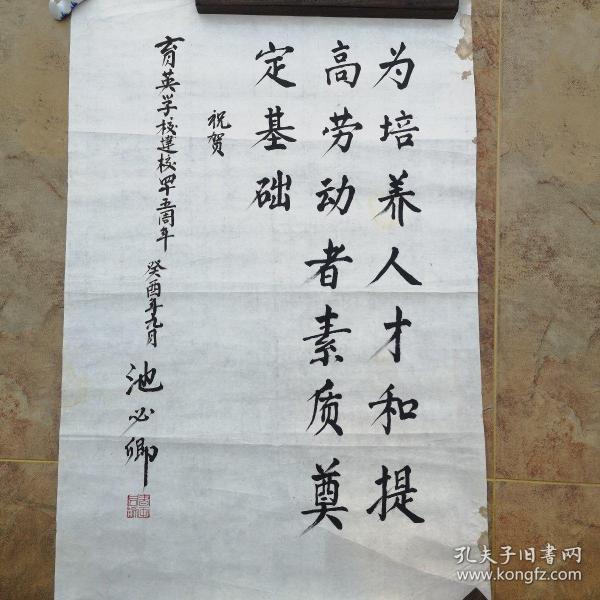 为培养人才和提
高劳动者素质奠
定基础
祝贺
育英学校建校四十五周年 癸酉年九月 池必卿
孔夫子旧书网
www.kongfz.com